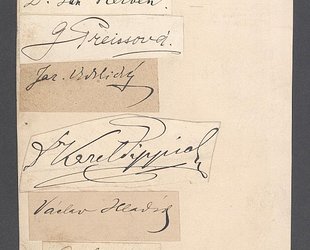 Dr. Jan Herben.
G Preissová.
Jar. Vrchlický
Dr Karel Pippich
Václav Hladík